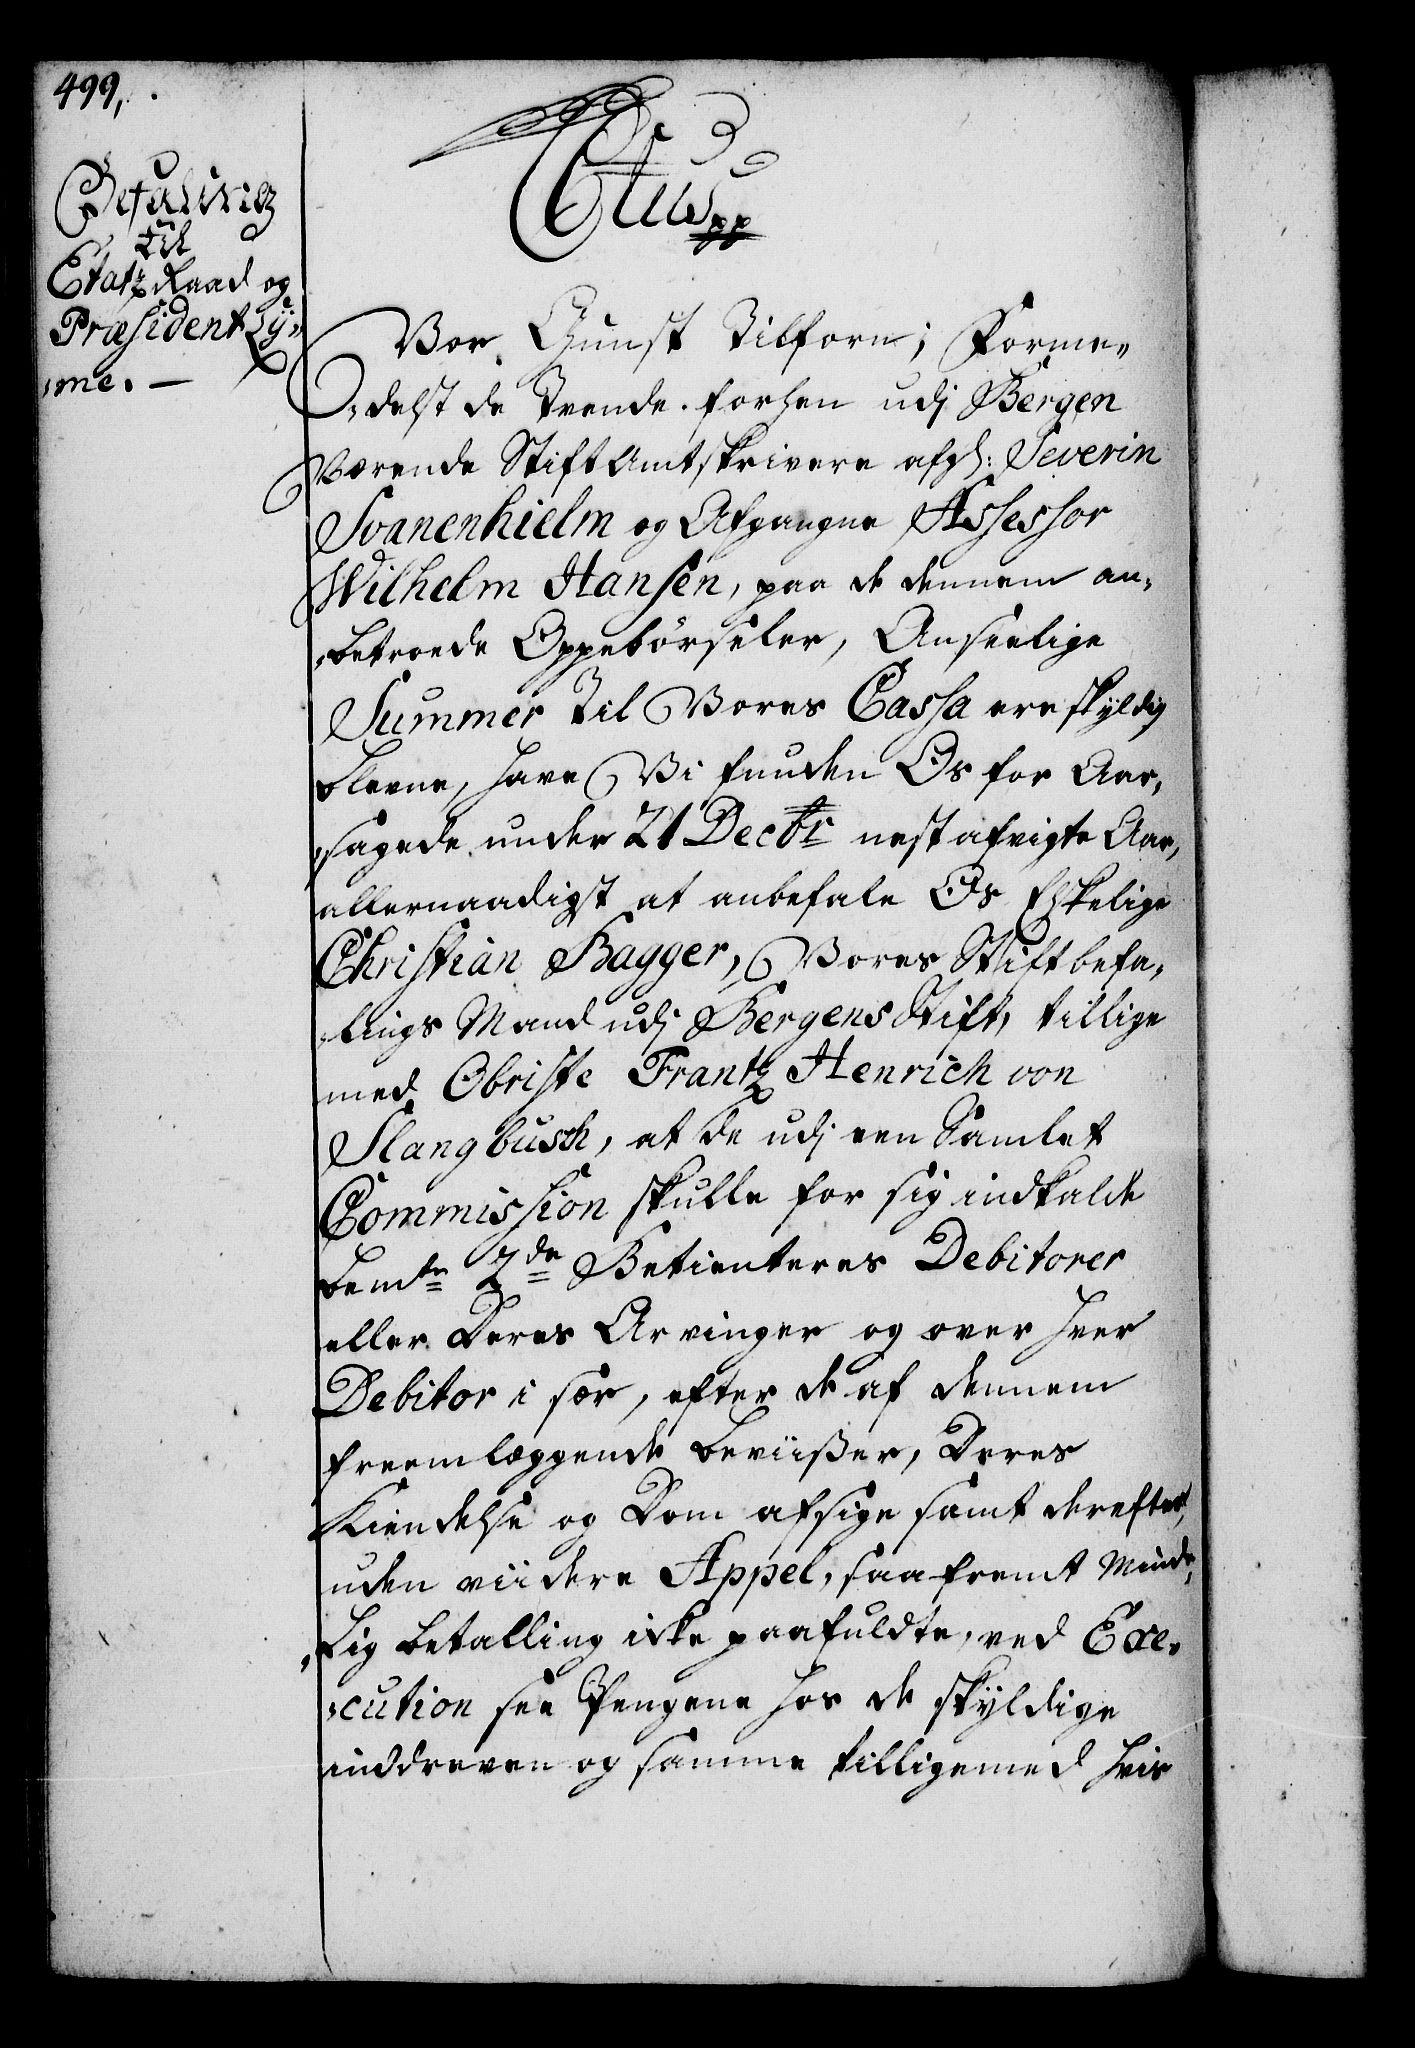 499,
Befaling
til
Etatz Raad og
Præsident Ly-
-me. —
C4tus pp
Vor Gunst Tilforn; Forme-
-delst de Tvende forhen udj Bergen
Værende Stiftamtskrivere afg: Severin
Svanenhielm og Afgangne Assessor
Wilhelm Hansen, paa de dennem an-
-betroede Oppebørseler, Anseelige
Summer til Vores Cassa ere skyldig
blevne, have Vi funden Os for Aar-
-sagede under 21 Decbr nest afvigte Aar,
allernaadigst at anbefale Os Elskelige
Christian Bagger, Vores Stiftbefa-
-lings Mand udj Bergens Stift, tillige
med Obriste Frantz Henrich von
Slangbusch, at de udj een Samlet
Commission skulle for sig indkalde
bemte 2de Betienteres Debitorer
eller Deres Arvinger og over hver
Debitor i sær, efter de af dennem
freemlæggende beviißer, Deres
Kiendelse og Dom afsige samt derefter,
uden viidere Appel, saafremt Mind-
-lig betalling icke paafuldte, ved Exe-
-cution see Pengene hos de skyldige
inddreven og samme tilligemed hvis